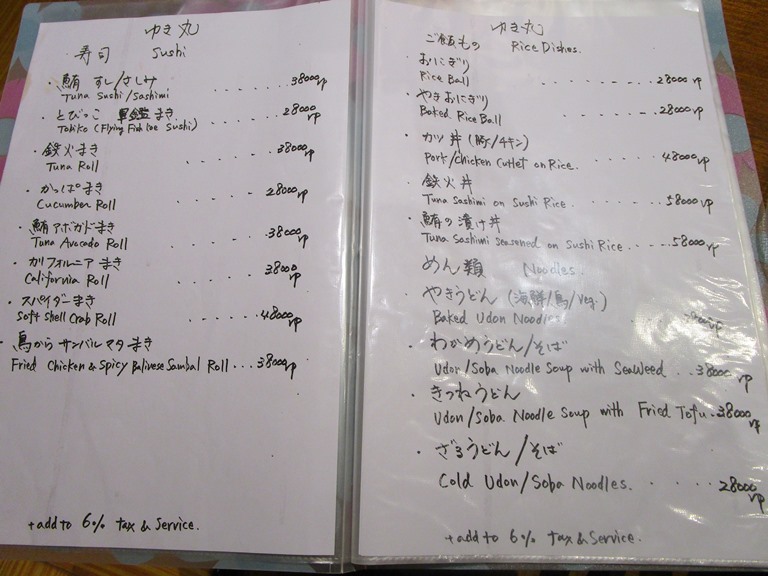 ゆき丸
寿司 Sushi
・鮪 すし/さしみ
Tuna Sushi/Sashimi ........ 38000 rp
・とびっこ 軍艦まき
Tobiko (Flying Fish roe Sushi) ..... 28000 rp
・鉄火まき
Tuna Roll ..... 38000 rp
・かっぱまき
Cucumber Roll ..... 28000 rp
・鮪アボガドまき
Tuna Avocado Roll ..... 38000 rp
・カリフォルニアまき
California Roll ..... 38000 rp
・スパイダーまき
Soft Shell Crab Roll ..... 48000 rp
・鳥から サンバルマタまき
Fried Chicken & Spicy Balinese Sambal Roll ... 38000 rp
+add to 6% tax & Service.
ゆき丸
ご飯もの Rice Dishes.
・おにぎり
Rice Ball ....... 28000 rp
・やきおにぎり
Baked Rice Ball ..... 28000 rp
・カツ丼 (豚/チキン)
Pork/Chicken Cutlet on Rice. ..... 48000 rp
・鉄火丼
Tuna Sashimi on Sushi Rice ..... 58000 rp
・鮪の漬け丼
Tuna Sashimi seasoned on Sushi Rice ..... 58000 rp
めん類 Noodles.
・やきうどん (海鮮/鳥/veg.)
Baked Udon Noodles
・わかめうどん/そば
Udon/Soba Noodle Soup with Seaweed ... 38000 rp
・きつねうどん
Udon/Soba Noodle Soup with Fried Tofu .. 38000 rp
・ざるうどん/そば
Cold Udon/Soba Noodles. ..... 28000 rp
+add to 6% tax & Service.